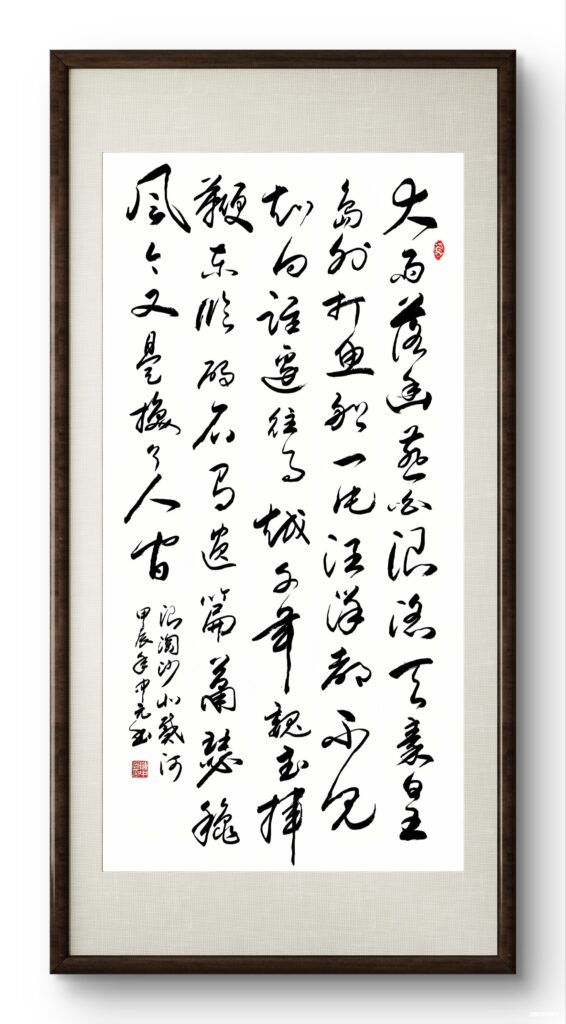 大雨落幽燕白浪滔天秦皇
岛外打鱼船一片汪洋都不见
知向谁边往事越千年魏武挥
鞭东临碣石有遗篇萧瑟秋
风今又是换了人间
浪淘沙北戴河
甲辰年中元书